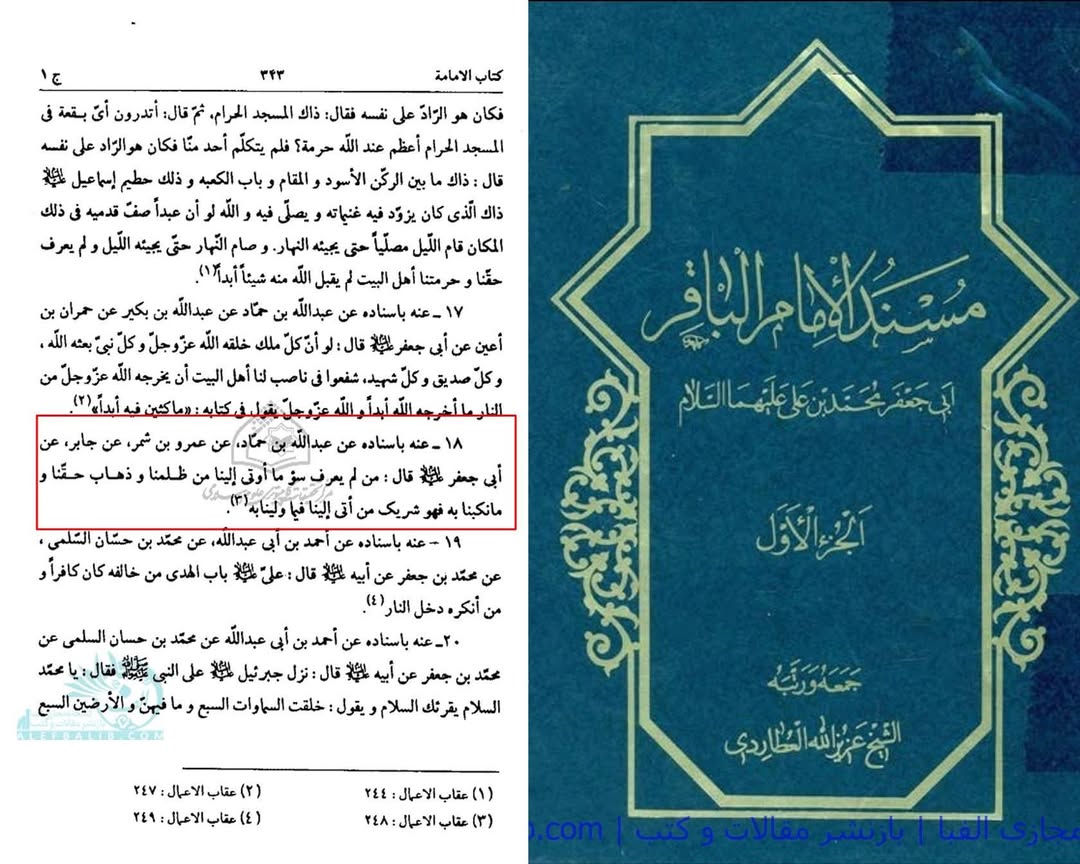 كتاب الامامة ٣٤٣ ج ١
فكان هو الرّادّ على نفسه فقال: ذاك المسجد الحرام، ثمّ قال: أتدرون أىّ بـقعة فى
المسجد الحرام أعظم عند اللّه حرمة؟ فلم يتكلّم أحد منّا فكان هو الرّاد على نفسه
قال : ذاك ما بين الركّن الأسود و المقام و باب الكعبه و ذلك حطيم إسماعيل عليه السلام
ذاك الّذى كان يزوّد فيه غنيماته و يصلّى فيه و اللّه لو أن عبداً صفّ قدميه فى ذلك
المكان قام اللّيل مصلّياً حتى يجيئه النهار. و صام النّهار حتّى يجيئه اللّيل و لم يعرف
حقّنا و حرمتنا أهل البيت لم يقبل اللّه منه شيئاً أبداً(١).
١٧ ـ عنه باسناده عن عبداللّه بن حمّاد عن عبداللّه بن بكير عن حمران بن
أعين عن أبى جعفر عليه السلام قال : لو أنّ كلّ ملك خلقه اللّه عزّوجلّ و كلّ نبىّ بعثه اللّه ،
و كلّ صديق و كلّ شهيد، شفعوا فى ناصب لنا أهل البيت أن يخرجه اللّه عزّوجلّ من
النار ما أخرجه اللّه أبداً و اللّه عزّوجلّ يقول فى كتابه : «ماكثين فيه أبداً»(٢).
١٨ ـ عنه باسناده عن عبداللّه بن حمّاد، عن عمرو بن شمر، عن جابر، عن
أبى جعفر عليه السلام قال : من لم يعرف سؤ ما أوتى إلينا من ظـلمنا و ذهـاب حـقّنا و
مانكبنا به فهو شريك من أتى إلينا فيما ولينابه(٣).
١٩ - عنه باسناده عن أحمد بن أبى عبداللّه، عن محمّد بن حسّان السّلمى ،
عن محمّد بن جعفر عن أبيه عليه السلام قال : علىّ عليه السلام باب الهدى من خالفه كان كافراً و
من أنكره دخل النار(٤).
٢٠ـ عنه باسناده عن أحمد بن أبى عبداللّه عن محمّد بن حسان السلمى عن
محمّد بن جعفر عن أبيه عليه السلام قال : نزل جبرئيل عليه السلام على النبى صلى الله عليه وآله فقال : يا محمّد
السلام يقرئك السلام و يقول : خلقت السماوات السبع و ما فيهنّ و الأرضين السبع
(١) عقاب الاعمال : ٢٤٤ (٢) عقاب الاعمال : ٢٤٧
(٣) عقاب الاعمال : ٢٤٨ (٤) عقاب الاعمال : ٢٤٩
ALEFBALIB.COM
مسند الإمام الباقر
أبي جعفر محمد بن علي عليهما السلام
الجزء الأول
جمعه ورتبه
الشيخ عزيز الله العطاردي
مجازی الفبا | بازنشر مقالات و کتب | b.com